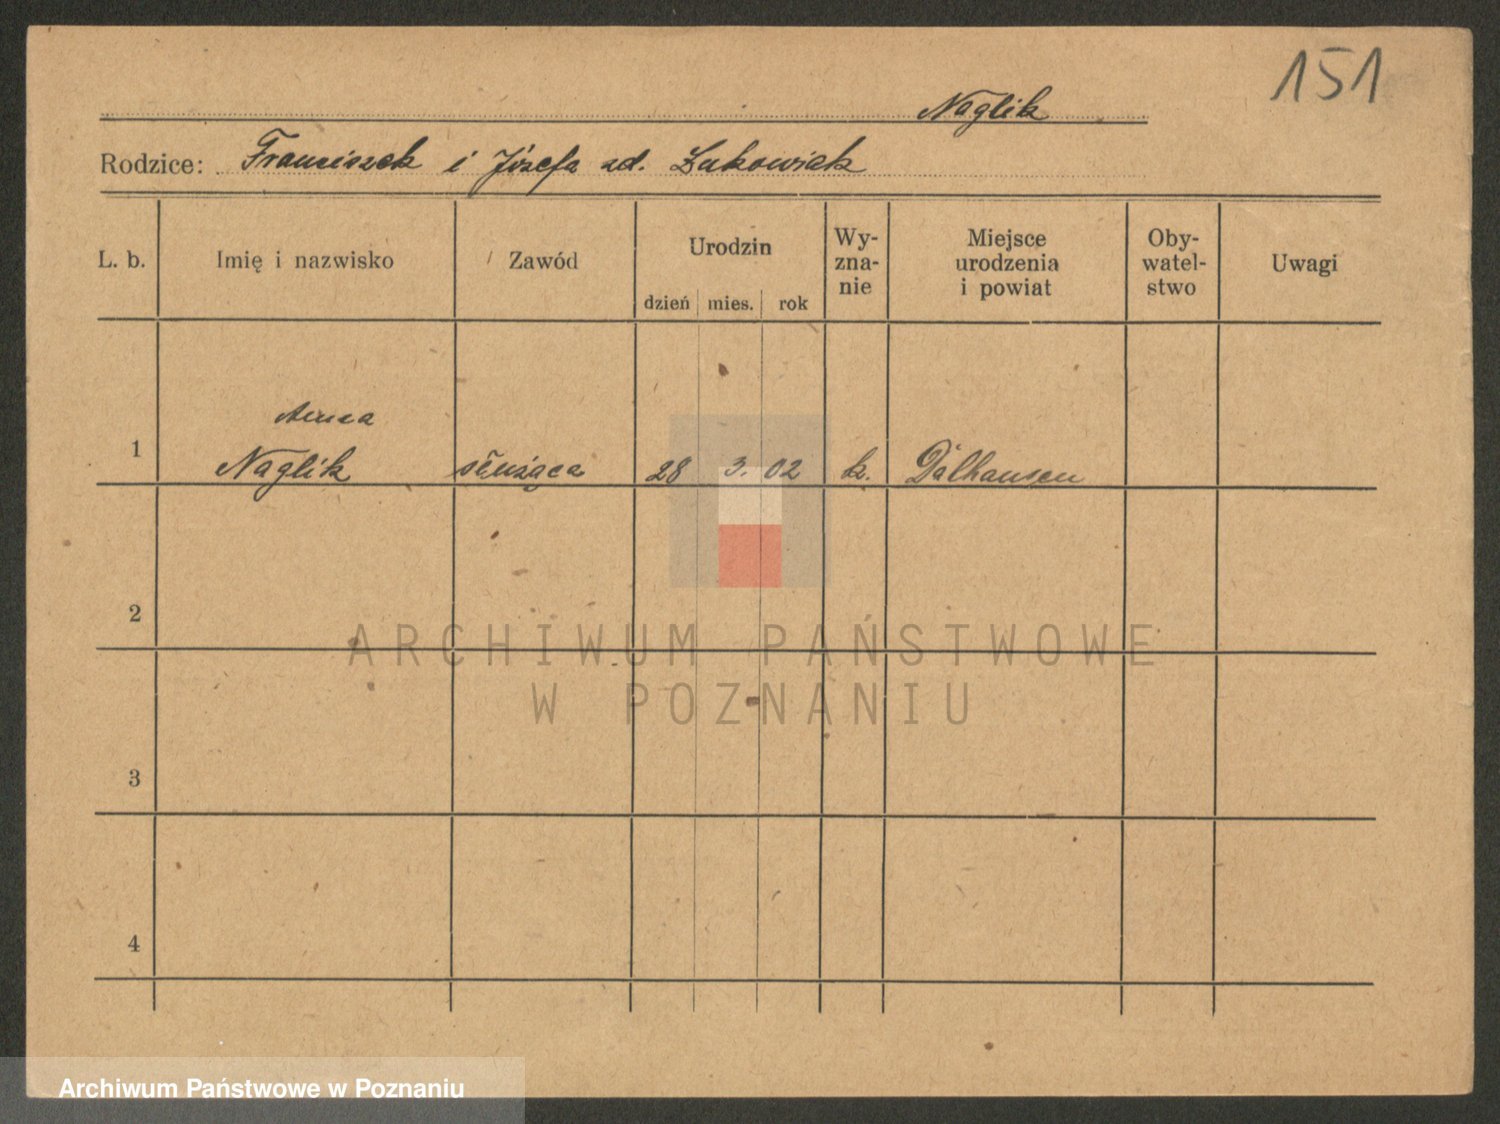 151
Naglik
Rodzice: Franciszek i Józefa zd. Łukowiak
L. b. Imię i nazwisko Zawód Urodzin Wy-zna-nie Miejsce urodzenia i powiat Oby-watel-stwo Uwagi
dzień mies. rok
Anna
1 Naglik służąca 28 3. 02 k. Dalhausen
2
ARCHIWUM PAŃSTWOWE
W POZNANIU
3
4
Archiwum Państwowe w Poznaniu